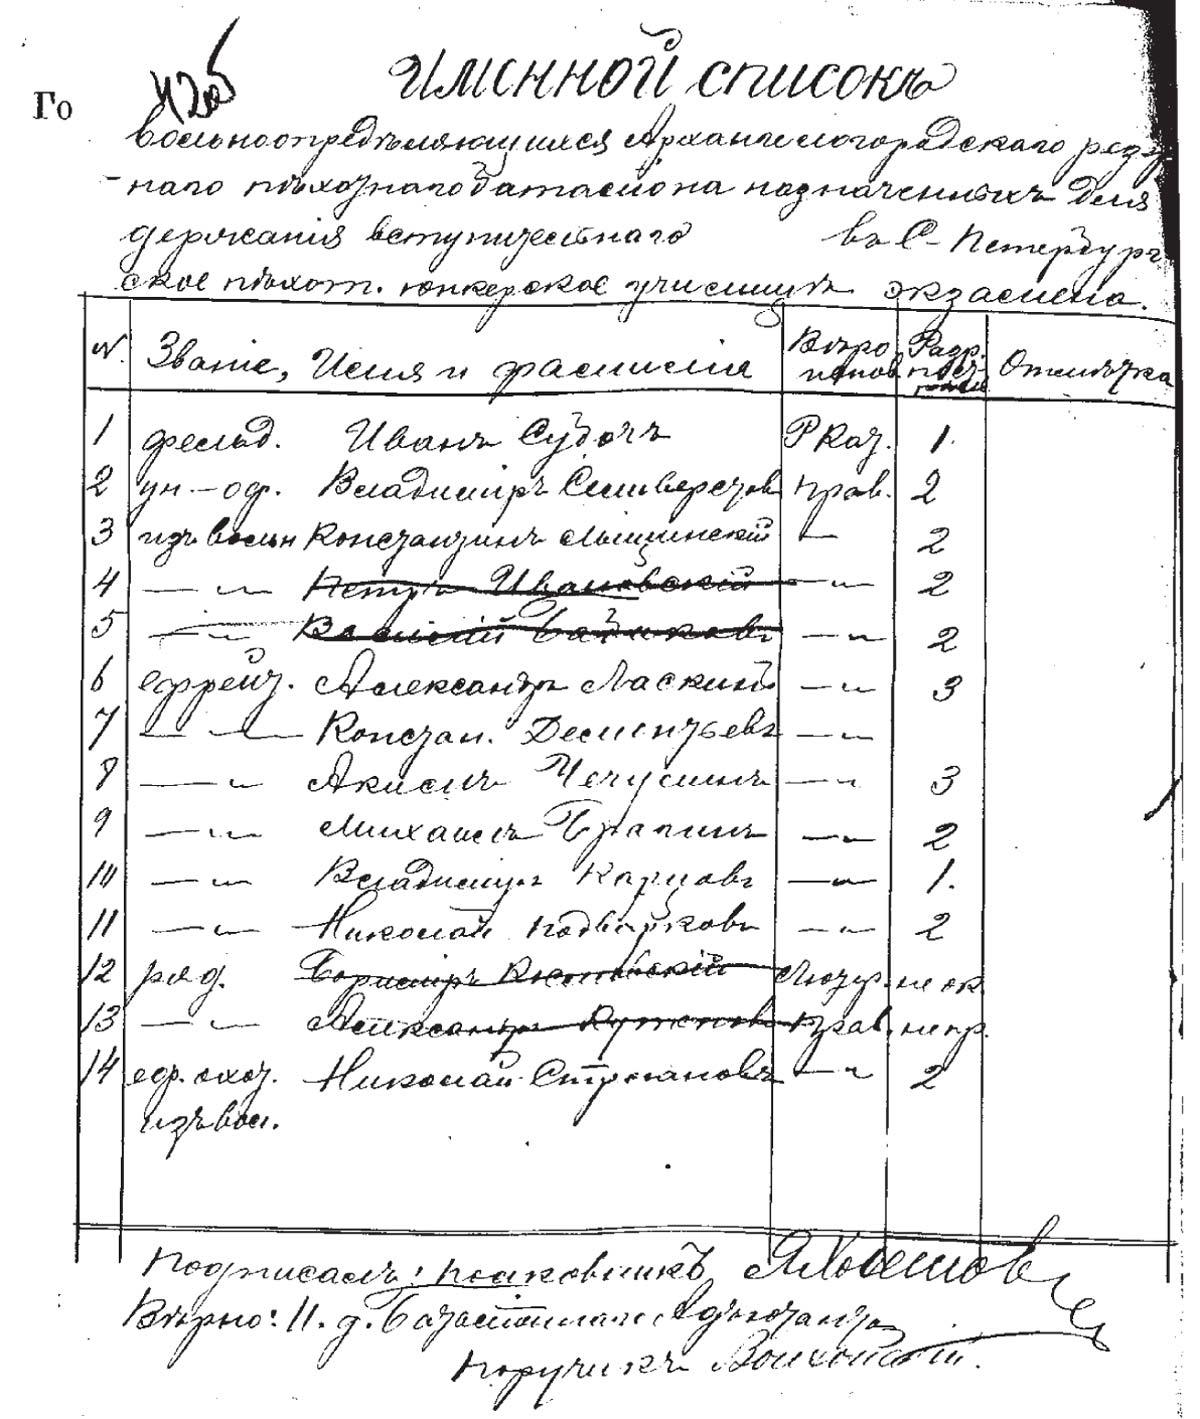 Го
Именной списокъ
вольноопредѣляющихся Архангелогородскаго резер
-наго пѣхотнаго баталиона назначенныхъ для
держания вступительнаго въ С-Петербург
ское пѣхот. юнкерское училище экзамена.
№. Званіе, Имя и фамилія Вѣро исповѣ Разр. Отмѣтка
1 фельд. Иванъ РКат. 1.
2 ун.-оф. Владиміръ Сильверстов прав. 2
3 изъ вольн Константинъ Мощинскій — 2
4 — " — Петръ Ивановскій — " — 2
5 — " — Василій — " — 2
6 ефрейт. Александръ Ласкинъ — " — 3
7 — " — Констан. Дементьевъ — " —
8 — " — Акимъ Чечулинъ — " — 3
9 — " — Михаилъ — " — 2
10 — " — Владиміръ Карповъ — " — 1.
11 — " — Николай — " — 2
12 ряд. лютер. не ок.
13 — " — Александръ прав. не пр.
14 ефр. охот. Николай Степановъ — " — 2
изъ вол.
Подписалъ: полковникъ
Вѣрно: И. д. Баталионнаго Адъютанта
поручикъ